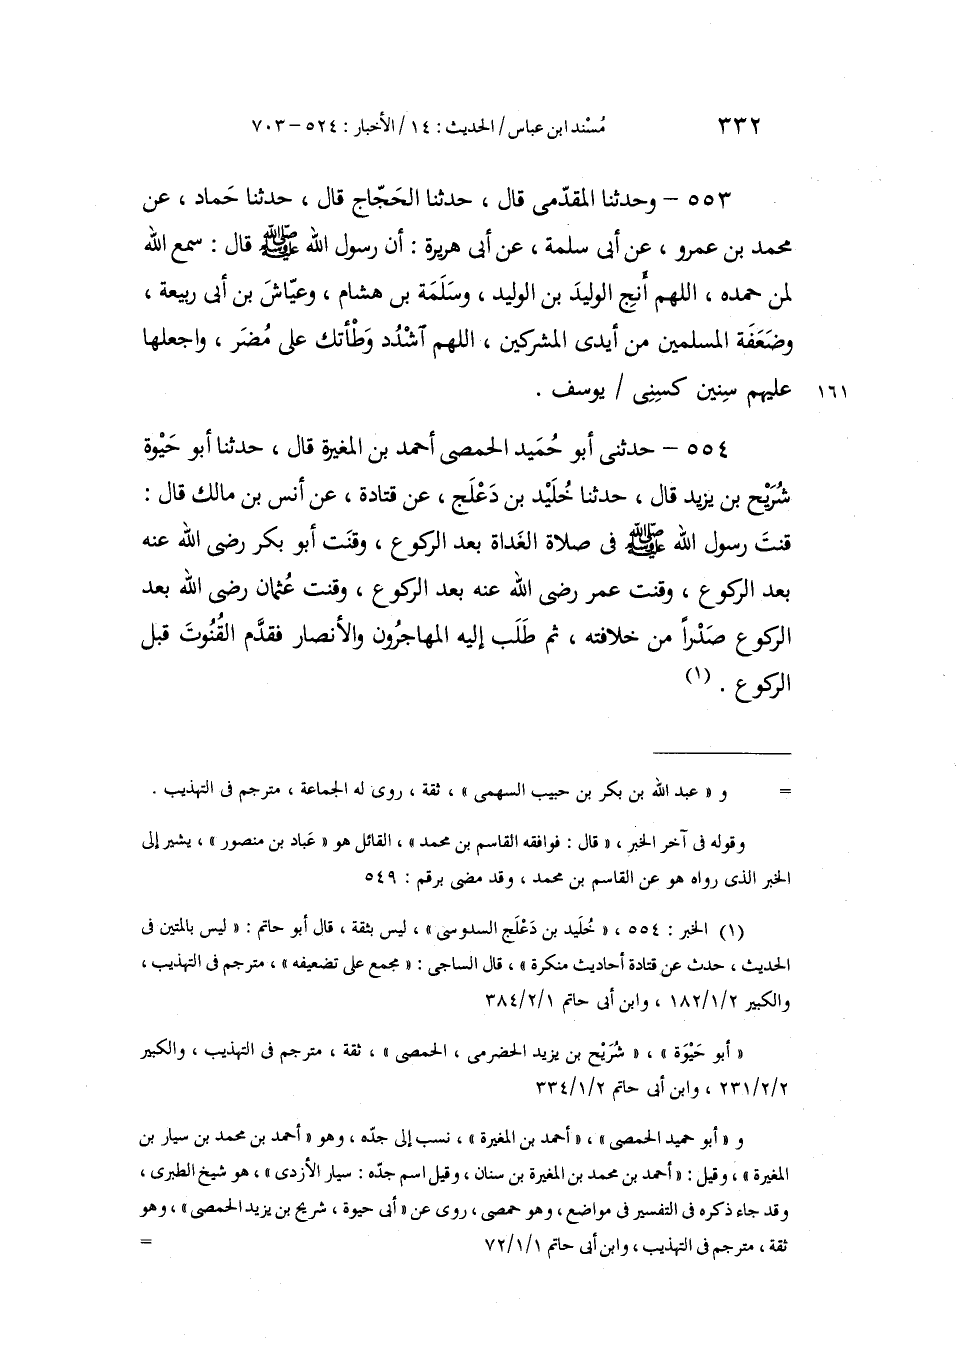 ٣٣٢ مُسْند ابن عباس / الحديث : ١٤ / الأخبار : ٥٢٤ – ٧٠٣
٥٥٣ – وحدثنا المقدّمى قال ، حدثنا الحَجّاج قال ، حدثنا حَماد ، عن
محمد بن عمرو ، عن أبى سلمة ، عن أبى هريرة : أن رسول الله ﷺ قال : سمع الله
لمن حمده ، اللهم أَنجِ الوليدَ بن الوليد ، وسَلَمَة بن هشام ، وعيّاشَ بن أبى ربيعة ،
وضَعَفَة المسلمين من أيدى المشركين ، اللهم ٱشْدُد وَطْأتك على مُضَر ، واجعلها
عليهم سِنِين كسِنِى / يوسف . ١٦١
٥٥٤ – حدثنى أبو حُمَيد الحمصى أحمد بن المغيرة قال ، حدثنا أبو حَيْوة
شُرَيْح بن يزيد قال ، حدثنا خُلَيْد بن دَعْلَج ، عن قتادة ، عن أنس بن مالك قال :
قنتَ رسول الله ﷺ فى صلاة الغَداة بعد الركوع ، وقنَت أبو بكر رضى الله عنه
بعد الركوع ، وقنت عمر رضى الله عنه بعد الركوع ، وقنت عُثمان رضى الله بعد
الركوع صَدْراً من خلافته ، ثم طَلَب إليه المهاجرُون والأنصار فقدَّم القُنُوتَ قبل
الركوع . (١)
= و « عبد الله بن بكر بن حبيب السهمى » ، ثقة ، روى له الجماعة ، مترجم فى التهذيب .
وقوله فى آخر الخبر ، « قال : فوافقه القاسم بن محمد » ، القائل هو « عَباد بن منصور » ، يشير إلى
الخبر الذى رواه هو عن القاسم بن محمد ، وقد مضى برقم : ٥٤٩
(١) الخبر : ٥٥٤ ، « خُلَيد بن دَعْلَج السدوسى » ، ليس بثقة ، قال أبو حاتم : « ليس بالمتين فى
الحديث ، حدث عن قتادة أحاديث منكرة » ، قال الساجى : « مجمع على تضعيفه » ، مترجم فى التهذيب ،
والكبير ١٨٢/١/٢ ، وابن أبى حاتم ٣٨٤/٢/١
« أبو حَيْوَة » ، « شُرَيْح بن يزيد الحضرمى ، الحمصى » ، ثقة ، مترجم فى التهذيب ، والكبير
٢٣١/٢/٢ ، وابن أبى حاتم ٣٣٤/١/٢
و « أبو حميد الحمصى » ، « أحمد بن المغيرة » ، نسب إلى جدّه ، وهو « أحمد بن محمد بن سيار بن
المغيرة » ، وقيل : « أحمد بن محمد بن المغيرة بن سنان ، وقيل اسم جدّه : سيار الأزدى » ، هو شيخ الطبرى ،
وقد جاء ذكره فى التفسير فى مواضع ، وهو حمصى ، روى عن « أبى حيوة ، شريح بن يزيد الحمصى » ، وهو
ثقة ، مترجم فى التهذيب ، وابن أبى حاتم ٧٢/١/١ =